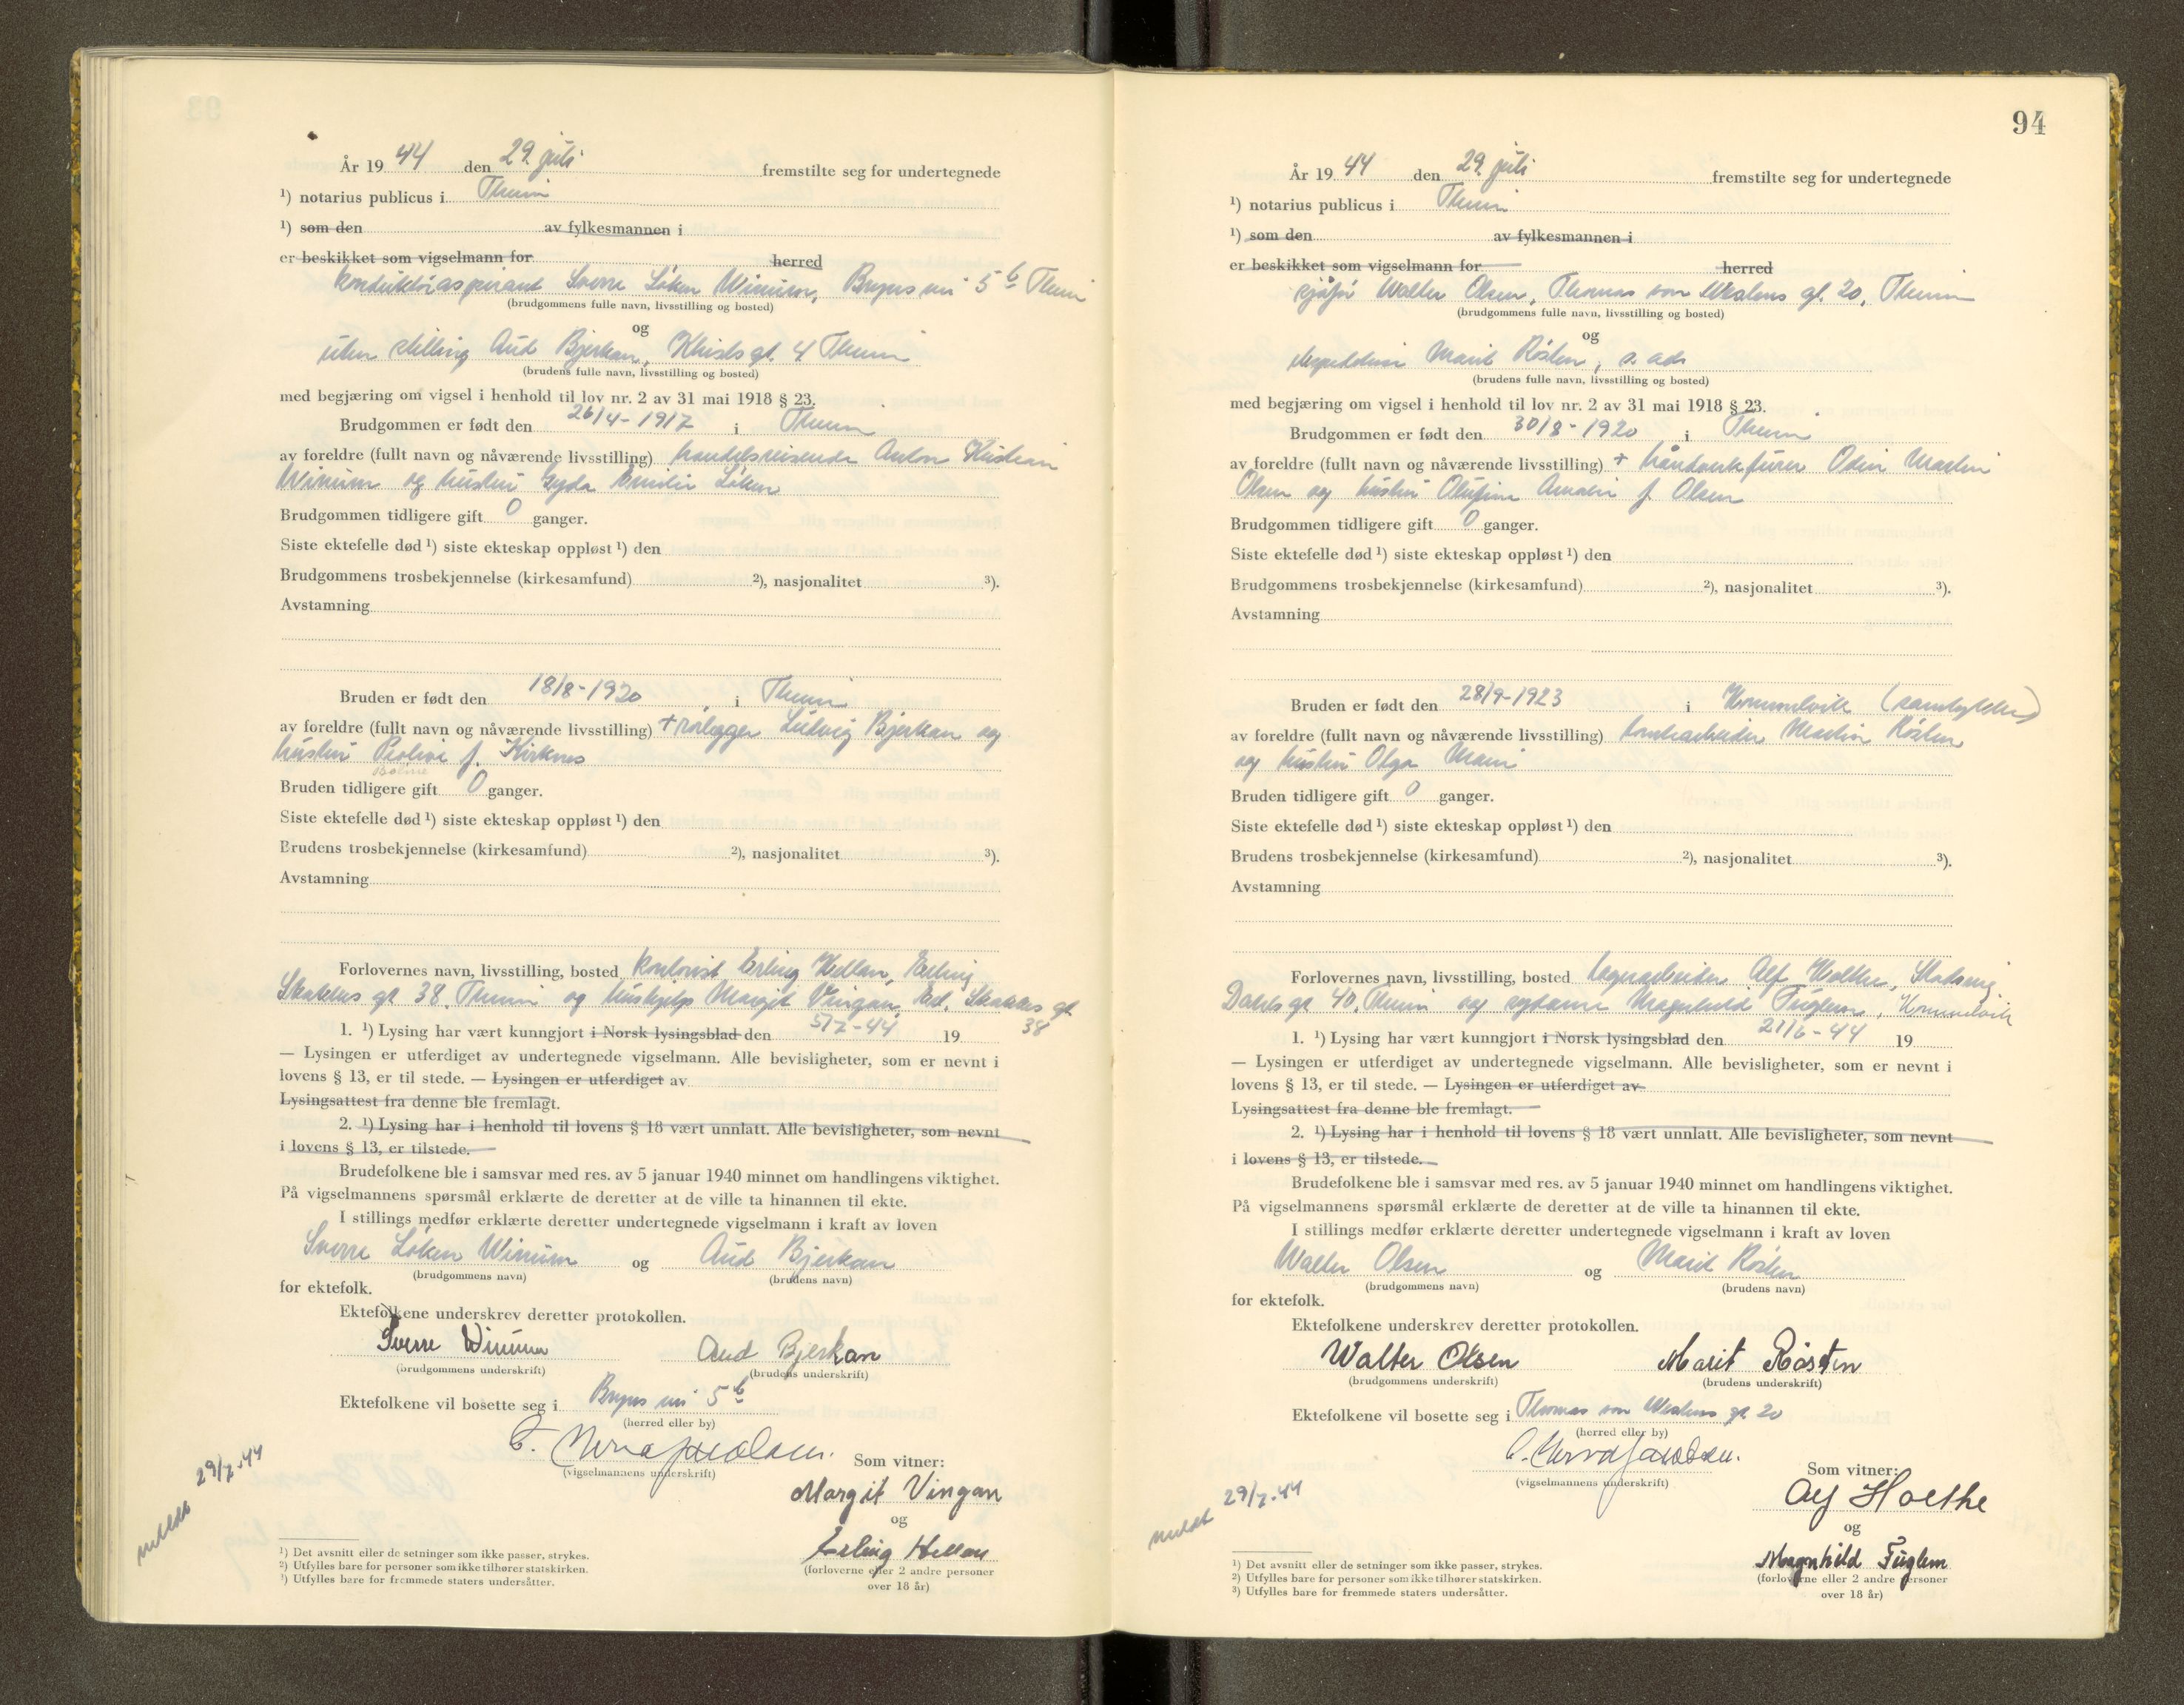 År 19 44 den 29 juli fremstilte seg for undertegnede
¹) notarius publicus i Theim
¹) som den av fylkesmannen i
er beskikket som vigselmann for herred
konduktøraspirant Sverre Løken Winum, Bryns vei 5 b Theim
(brudgommens fulle navn, livsstilling og bosted)
og
uten stilling Aud Bjerkan, gt. 4 Theim
(brudens fulle navn, livsstilling og bosted)
med begjæring om vigsel i henhold til lov nr. 2 av 31 mai 1918 § 23.
Brudgommen er født den 26/4-1917 i Theim
av foreldre (fullt navn og nåværende livsstilling) handelsreisende Anton Kristian
Winum og hustru Gyda Emilie Løken
Brudgommen tidligere gift 0 ganger.
Siste ektefelle død ¹) siste ekteskap oppløst ¹) den
Brudgommens trosbekjennelse (kirkesamfund) ²), nasjonalitet ³).
Avstamning
Bruden er født den 18/8-1920 i Theim
av foreldre (fullt navn og nåværende livsstilling) + rørlegger Ludvig Bjerkan og
hustru f. Kirknes
Bruden tidligere gift 0 ganger.
Siste ektefelle død ¹) siste ekteskap oppløst ¹) den
Brudens trosbekjennelse (kirkesamfund) ²), nasjonalitet ³).
Avstamning
Forlovernes navn, livsstilling, bosted kontorist Erling Hellan, Erling
Skakkes gt 38, Theim og hushjelp Margit Vingan, Erl. Skakkes gt
38
1. ¹) Lysing har vært kunngjort i Norsk lysingsblad den 5/7-44 19
— Lysingen er utferdiget av undertegnede vigselmann. Alle bevisligheter, som er nevnt i
lovens § 13, er til stede. — Lysingen er utferdiget av
Lysingsattest fra denne ble fremlagt.
2. ¹) Lysing har i henhold til lovens § 18 vært unnlatt. Alle bevisligheter, som nevnt
i lovens § 13, er tilstede.
Brudefolkene ble i samsvar med res. av 5 januar 1940 minnet om handlingens viktighet.
På vigselmannens spørsmål erklærte de deretter at de ville ta hinannen til ekte.
I stillings medfør erklærte deretter undertegnede vigselmann i kraft av loven
Sverre Løken Winum og Aud Bjerkan
(brudgommens navn) (brudens navn)
for ektefolk.
Ektefolkene underskrev deretter protokollen.
Sverre Winum Aud Bjerkan
(brudgommens underskrift) (brudens underskrift)
Ektefolkene vil bosette seg i Bryns vei 5 b
(herred eller by)
(vigselmannens underskrift)
Som vitner:
Margit Vingan
og
Erling Hellan
(forloverne eller 2 andre personer
over 18 år)
meldt 29/7-44
¹) Det avsnitt eller de setninger som ikke passer, strykes.
²) Utfylles bare for personer som ikke tilhører statskirken.
³) Utfylles bare for fremmede staters undersåtter.
94
År 19 44 den 29 juli fremstilte seg for undertegnede
¹) notarius publicus i Theim
¹) som den av fylkesmannen i
er beskikket som vigselmann for herred
sjåfør Walter Olsen, Thomas von Westens gt. 20, Theim
(brudgommens fulle navn, livsstilling og bosted)
og
Marit Røsten, s. ads
(brudens fulle navn, livsstilling og bosted)
med begjæring om vigsel i henhold til lov nr. 2 av 31 mai 1918 § 23.
Brudgommen er født den 30/8-1920 i Theim
av foreldre (fullt navn og nåværende livsstilling) + Odin Martin
Olsen og hustru Olufine Amalie f. Olsen
Brudgommen tidligere gift 0 ganger.
Siste ektefelle død ¹) siste ekteskap oppløst ¹) den
Brudgommens trosbekjennelse (kirkesamfund) ²), nasjonalitet ³).
Avstamning
Bruden er født den 28/9-1923 i
av foreldre (fullt navn og nåværende livsstilling) Martin Røsten
og hustru Olga Marie
Bruden tidligere gift 0 ganger.
Siste ektefelle død ¹) siste ekteskap oppløst ¹) den
Brudens trosbekjennelse (kirkesamfund) ²), nasjonalitet ³).
Avstamning
Forlovernes navn, livsstilling, bosted lagerarbeider Alf Holthe, Statsing
Dahls gt 40, Theim og sydame Magnhild Fuglem,
1. ¹) Lysing har vært kunngjort i Norsk lysingsblad den 21/6-44 19
— Lysingen er utferdiget av undertegnede vigselmann. Alle bevisligheter, som er nevnt i
lovens § 13, er til stede. — Lysingen er utferdiget av
Lysingsattest fra denne ble fremlagt.
2. ¹) Lysing har i henhold til lovens § 18 vært unnlatt. Alle bevisligheter, som nevnt
i lovens § 13, er tilstede.
Brudefolkene ble i samsvar med res. av 5 januar 1940 minnet om handlingens viktighet.
På vigselmannens spørsmål erklærte de deretter at de ville ta hinannen til ekte.
I stillings medfør erklærte deretter undertegnede vigselmann i kraft av loven
Walter Olsen og Marit Røsten
(brudgommens navn) (brudens navn)
for ektefolk.
Ektefolkene underskrev deretter protokollen.
Walter Olsen Marit Røsten
(brudgommens underskrift) (brudens underskrift)
Ektefolkene vil bosette seg i Thomas von Westens gt 20
(herred eller by)
(vigselmannens underskrift)
Som vitner:
Alf Holthe
og
Magnhild Fuglem
(forloverne eller 2 andre personer
over 18 år)
meldt 29/7-44
¹) Det avsnitt eller de setninger som ikke passer, strykes.
²) Utfylles bare for personer som ikke tilhører statskirken.
³) Utfylles bare for fremmede staters undersåtter.